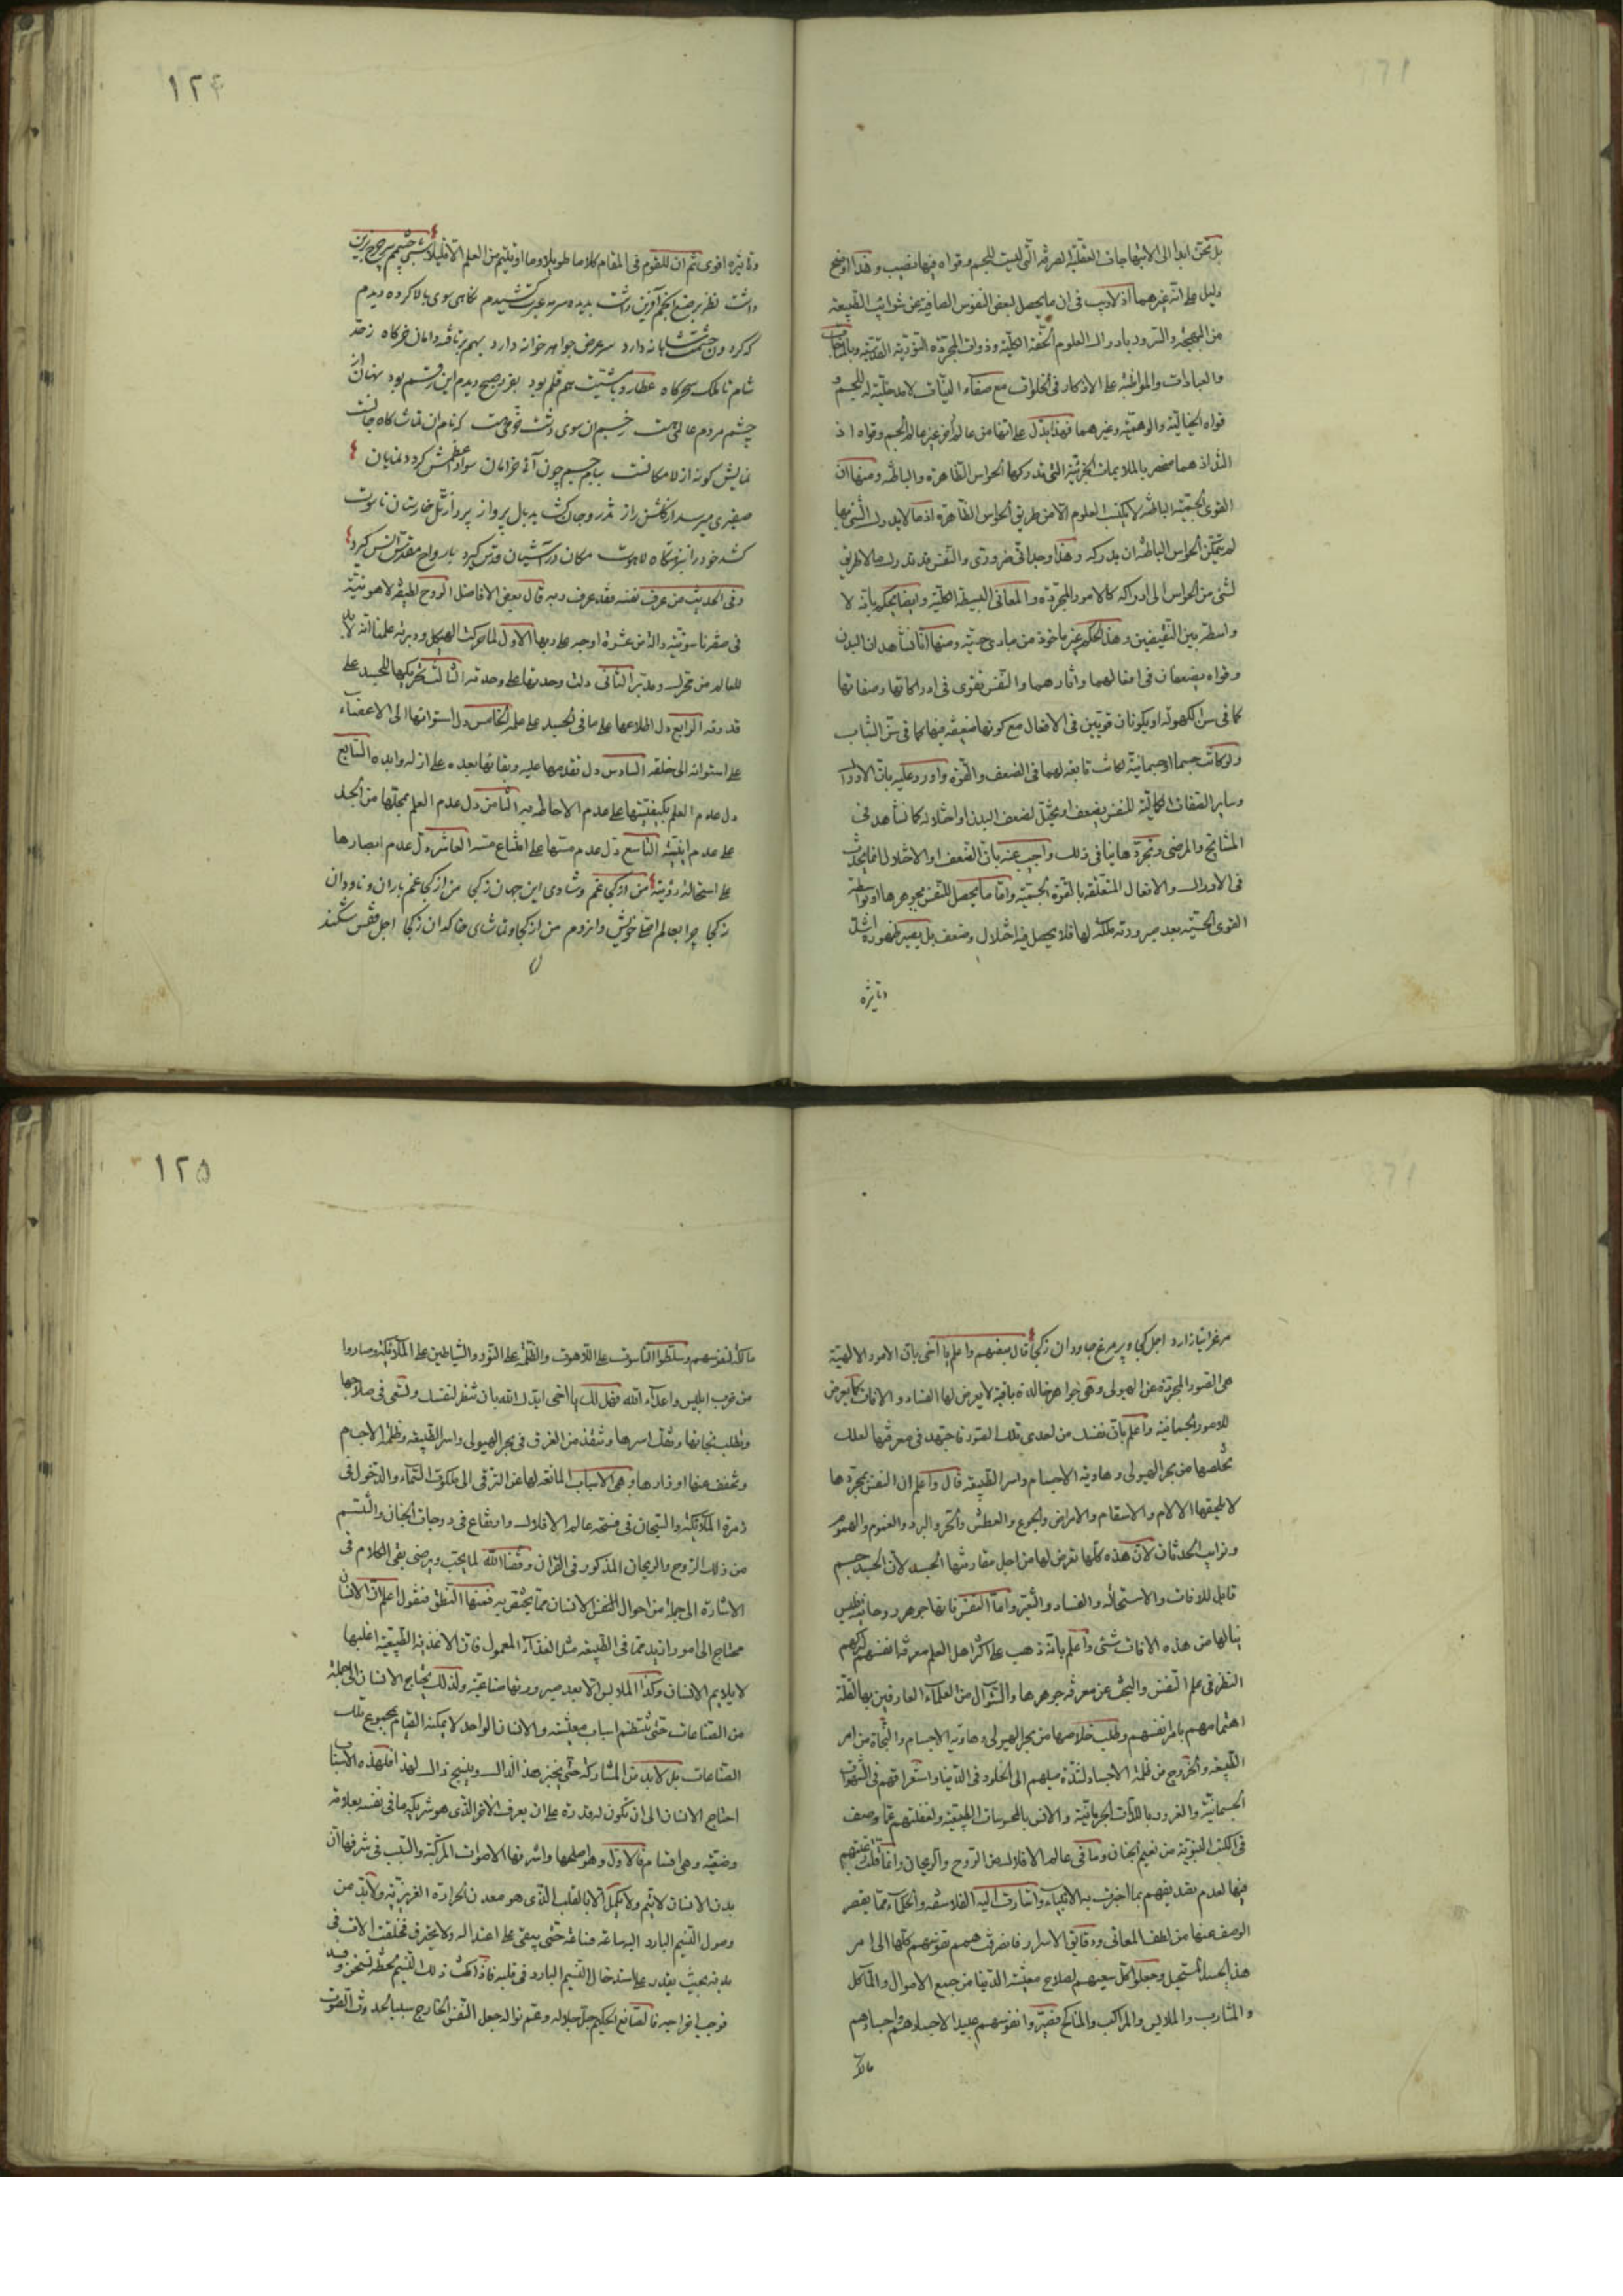 بل نحن ابدا الى الابتهاجات العقلية الصرفة التى ليست للجسم وقواه فيها نصيب وهذا اوضح
دليل على انه غيرهما اذ لاريب فى ان ما يحصل لبعض النفوس الصافية عن شوائب الطبيعة
من البهجة والسرور بادراك العلوم الحقة الكلية وذوات المجردة النورية القدسية وبالمناجات
والعبادات والمواظبة على الاذكار فى الخلوات مع صفاء النيات لا مدخلية له للجسم و
قواه الخيالية والوهمية وغيرهما فهذا يدل على انها من عالم اخر غير عالم الجسم وقواه اذ
التذاذهما منحصر بالملايمات الجزئية التى تدركها الحواس الظاهرة والباطنة ومنها ان
القوى الجسمية الباطنة لا تكتسب العلوم الا من طريق الحواس الظاهرة اذ ما لا يدرك بشئ منها
لم يتمكن الحواس الباطنة ان يدركه وهذا وجدانى ضرورى والنفس قد تدرك ما لا طريق
لشئ من الحواس الى ادراكه كالامور المجردة والمعانى البسيطة الكلية وايضا يحكم بانه لا
واسطة بين النقيضين وهذا الحكم غير ماخوذ من مبادى حسية ومنها انا نشاهد ان البدن
وقواه يضعفان فى افعالهما واثارهما والنفس تقوى فى ادراكاتها وصفاتها
كما فى سن الكهولة او يكونان قويين فى الافعال مع كونها ضعيفة فيها كما فى سن الشباب
ولو كانت جسما او جسمانية لكانت تابعة لهما فى الضعف والقوة واورد عليه بان الادراك
وساير الصفات الكمالية للنفس يضعف ويختل لضعف البدن او اختلاله كما نشاهد فى
المشايخ والمرضى وتجردها ينافى ذلك واجيب عنه بان الضعف او الاختلال انما يحدث
فى الادراك والافعال المتعلقة بالقوة الجسمية واما ما يحصل للنفس بجوهرها او بواسطة
القوى الحسية بعد صيرورته ملكة لها فلا يحصل فيه اختلال وضعف بل يصير ظهوره اشد
وتاثيره
١٢٤
وتاثيره اقوى ثم ان للقوم فى المقام كلاما طويلا وما اوتيتم من العلم الا قليلا شبى چشمم بر چرخ برين
داشت نظر بر صنع انجم آفرين داشت بديده سرمه عبرت كشيدم نگاهى سوى بالا كرده ديدم
كه گردون حشمت شاهانه دارد سر عرض جواهر خانه دارد بهم بر تافته دامان خرگاه زحد
شام تا ملك سحرگاه عطارد با مشيت هم قلم بود بفرد صبح ديدم اين رقم بود نهان از
چشم مردم عالمى هست رخ جسم ان سوى دشت خرمى هست كه نام ان تماشاگاه جانست
نمايش گونه از لامكانست بيا جسم چون آنجا خرامان سواد اعظمش گردد نمايان
صفيرى ميرسد از گلشن راز تذرو جان كشد بر بال پرواز پرد از تل خارستان ناسوت
كشد خود را بنزهتگاه لاهوت مكان در آشيان قدس گيرد بارواح مقدس انس گيرد
وفى الحديث من عرف نفسه فقد عرف ربه قال بعض الافاضل الروح لطيفة لاهوتية
فى صفة ناسوتية دالة من عشرة اوجه على ربها الاول لما حركت الهيكل ودبرته علمنا انه لابد
للعالم من محرك ومدبر الثانى دلت وحدتها على وحدته الثالث تحريكها للجسد على
قدرته الرابع دل اطلاعها على ما فى الجسد على علمه الخامس دل استوائها الى الاعضاء
على استوائه الى خلقه السادس دل تقدمها عليه وبقائها بعده على ازله وابده السابع
دل عدم العلم بكيفيتها على عدم الاحاطة به الثامن دل عدم العلم بمحلها من الجسد
على عدم اينيته التاسع دل عدم مسها على امتناع مسه العاشر دل عدم ابصارها
على استحالة رؤيته من از كجا غم وشادى اين جهان ز كجا من از كجا غم باران و ناودان
ز كجا چرا بعالم اصلى خويش وا نروم من از كجا و تماشاى خاكدان ز كجا اجل قفس شكند
مرغ را نيازارد اجل كجا و پر مرغ جاودان ز كجا قال بعضهم واعلم يا اخى بان الامور الالهية
هى الصور المجردة عن الهيولى وهى جواهر خالدة باقية لا يعرض لها الفساد والافات كما يعرض
للامور الجسمانية واعلم بان نفسك من احدى تلك الصور فاجتهد فى معرفتها لعلك
تخلصها من بحر الهيولى وهاوية الاجسام واسر الطبيعة قال واعلم ان النفس بمجردها
لا يلحقها الالام والاسقام والامراض والجوع والعطش والحر والبرد والغموم والهموم
ونوايب الحدثان لان هذه كلها تعرض لها من اجل مقارنتها الجسد لان الجسد جسم
قابل للافات والاستحالة والفساد والتغير واما النفس فانها جوهر روحانية فليس
ينالها من هذه الافات شئ واعلم بانه ذهب على اكثر اهل العلم معرفة انفسهم لتركهم
النظر فى علم النفس والبحث عن معرفة جوهرها والسؤال من العلماء العارفين بها لقلة
اهتمامهم بامر انفسهم وطلب خلاصها من بحر الهيولى وهاوية الاجسام والنجاة من اسر
الطبيعة والخروج من ظلمة الاجساد لشدة ميلهم الى الخلود فى الدنيا واستغراقهم فى الشهوات
الجسمانية والغرور باللذات الجرمانية والانس بالمحسوسات الطبيعية ولغفلتهم عما وصف
فى الكتب النبوية من نعيم الجنان وما فى عالم الافلاك من الروح والريحان وانما قلت رغبتهم
فيها لعدم تصديقهم بما اخبرت به الانبياء واشارت اليه الفلاسفة والحكماء مما يقصر
الوصف عنها من لطف المعانى ودقايق الاسرار فانصرفت همم نفوسهم كلها الى امر
هذا الجسد المستحيل وجعلوا كل سعيهم لصلاح معيشة الدنيا من جمع الاموال والمآكل
والمشارب والملابس والمراكب والمناكح فصيروا نفوسهم عبيدا لاجسادهم واجسادهم
مالكة
١٢٥
مالكة لنفوسهم وسلطوا الناسوت على اللاهوت والظلمة على النور والشياطين على الملائكة وصاروا
من حزب ابليس واعداء الله فهل لك يا اخى ايدك الله بان تنظر لنفسك وتسعى فى صلاحها
وتطلب نجاتها وتفك اسرها وتنقذ من الغرق فى بحر الهيولى واسر الطبيعة وظلمة الاجسام
وتخفف عنها اوزارها وهى الاسباب المانعة لها عن الترقى الى ملكوت السماء والدخول فى
زمرة الملائكة والسيحان فى فسحة عالم الافلاك وارتفاع فى درجات الجنان والتنسم
من ذلك الروح والريحان المذكور فى القران وفقنا الله لما يحب ويرضى بقى الكلام فى
الاشارة الى جملة من احوال النفس الانسان مما يختص به فمنها النطق فنقول اعلم ان الانسان
محتاج الى امور ازيد مما فى الطبيعة مثل الغذاء المعمول فان الاغذية الطبيعية اغلبها
لا يلايم الانسان وكذا الملابس الا بعد صيرورتها صناعية ولذلك يحتاج الانسان الى جملة
من الصناعات حتى تنتظم اسباب معيشته والانسان الواحد لا يمكنه القيام بمجموع تلك
الصناعات بل لابد من المشاركة حتى يخبز هذا لذاك وينسج ذاك لهذا فلهذه الاسباب
احتاج الانسان الى ان تكون له قدرة على ان يعرف الاخر الذى هو شريكه ما فى نفسه بعلامة
وضعية وهى اقسام فالاول وهو اصلحها واشرفها الاصوات المركبة والسبب فى شرفها ان
بدن الانسان لا يتم ولا يكمل الا بالقلب الذى هو معدن الحرارة الغريزية ولابد من
وصول النسيم البارد اليه ساعة فساعة حتى يبقى على اعتداله ولا يحترق فخلقت الالات فى
بدنه بحيث يقدر على استدخال النسيم البارد فى قلبه فاذا مكث ذلك النسيم لحظة تسخن وفسد
فوجب اخراجه فالصانع الحكيم جل جلاله وعم نواله جعل النفس الخارج سببا لحدوث الصوت